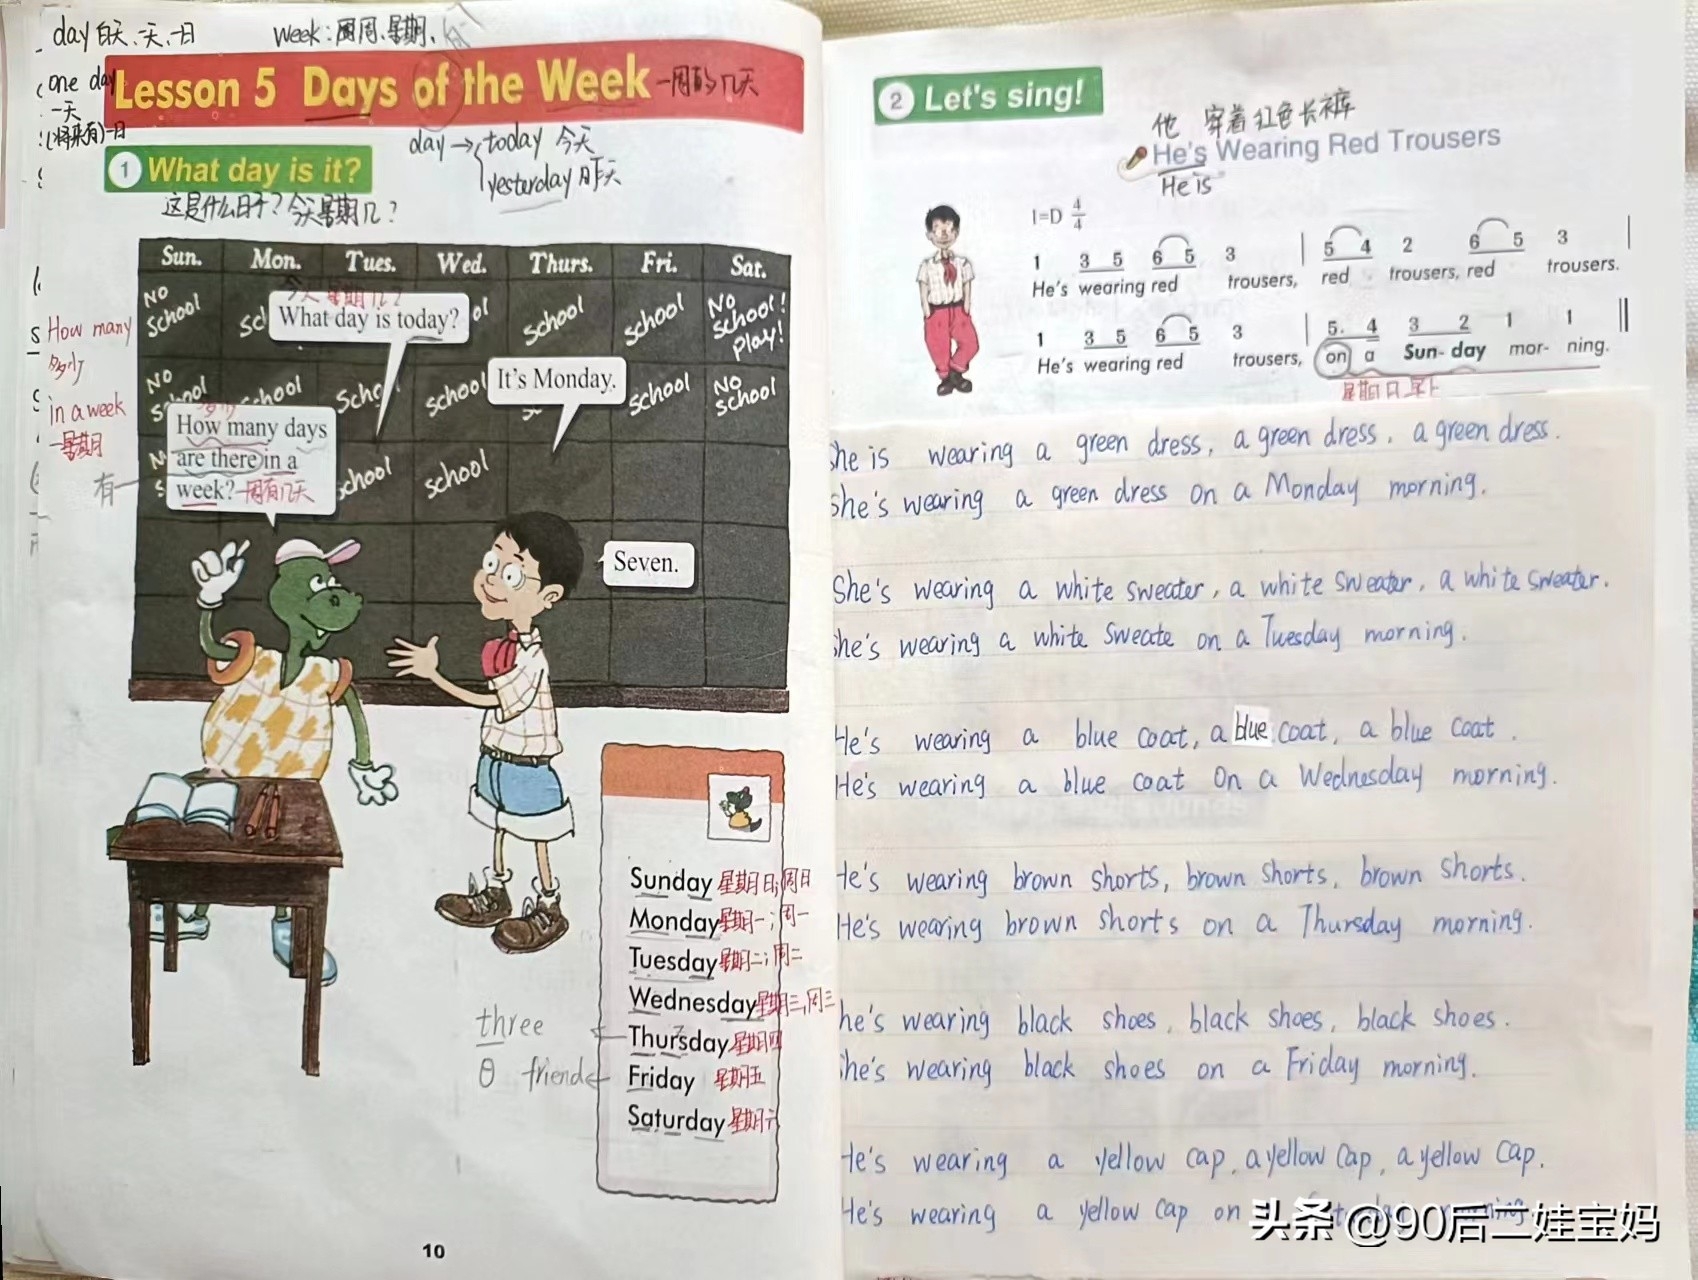 day 白天、一天、一日
week：周、星期、
one day
一天
(将来有)一日
Lesson 5 Days of the Week 一周的几天
day → today 今天
yesterday 昨天
1 What day is it?
这是什么日子？今天星期几？
Sun. Mon. Tues. Wed. Thurs. Fri. Sat.
No School
School
School
No School! Play!
今天星期几？
What day is today?
No School
School
School
School
No School
It's Monday.
How many
多少
in a week
一星期
有
多少
How many days
are there in a
week? 一周有几天
School
School
Seven.
Sunday 星期日；周日
Monday 星期一；周一
Tuesday 星期二；周二
Wednesday 星期三；周三
three
Thursday 星期四
θ friend
Friday 星期五
Saturday 星期六
10
2 Let's sing!
他 穿着红色长裤
He's Wearing Red Trousers
He is
1=D 4/4
1 3 5 6 5 3 | 5 4 2 6 5 3 |
He's wearing red trousers, red trousers, red trousers.
1 3 5 6 5 3 | 5. 4 3 2 1 1 ‖
He's wearing red trousers, on a Sun- day mor- ning.
星期日早上
he is wearing a green dress, a green dress, a green dress.
she's wearing a green dress on a Monday morning.
She's wearing a white sweater, a white sweater, a white sweater.
she's wearing a white sweate on a Tuesday morning.
He's wearing a blue coat, a blue coat, a blue coat.
He's wearing a blue coat on a Wednesday morning.
He's wearing brown shorts, brown shorts, brown shorts.
He's wearing brown shorts on a Thursday morning.
he's wearing black shoes, black shoes, black shoes.
she's wearing black shoes on a Friday morning.
He's wearing a yellow cap, a yellow cap, a yellow cap.
He's wearing a yellow cap on
头条 @90后二娃宝妈